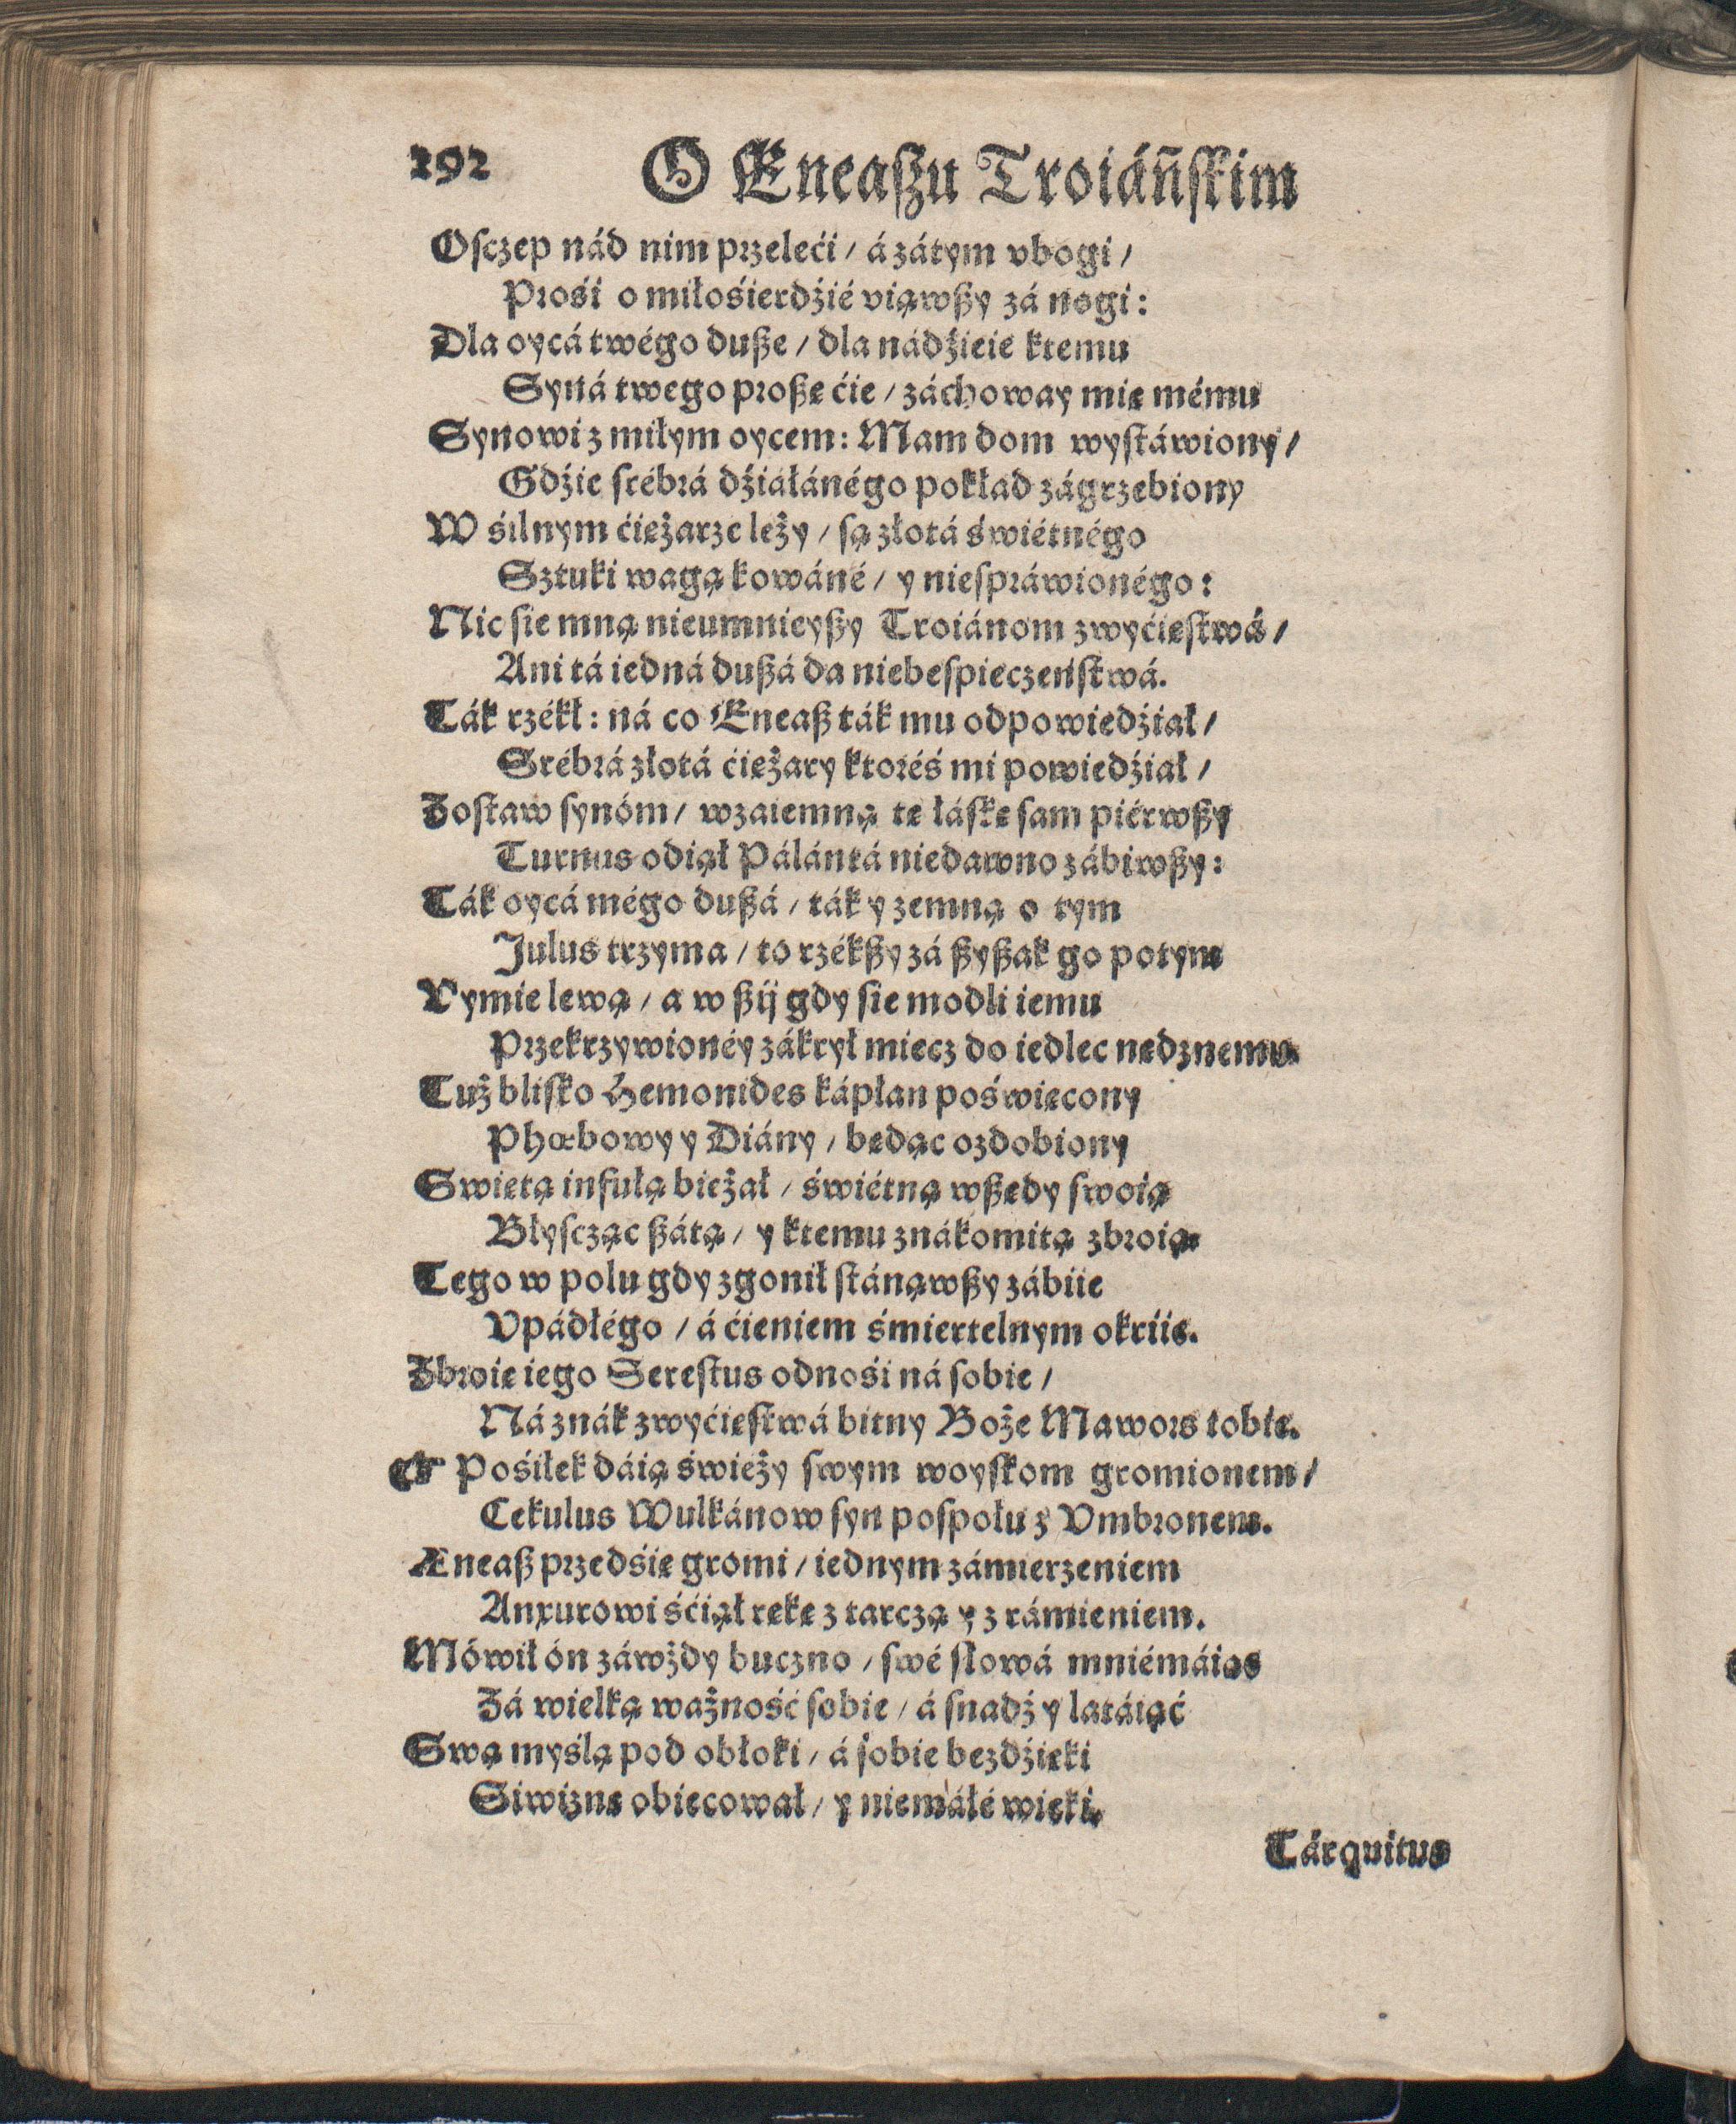 292 O Eneaſzu Troiáńſkim
Oſczep nád nim przelećі / á zátym vbogi /
Prośi o miłośierdźié viąwßy zá nogi:
Dla oycá twégo duße / dla nádźieie ktemu
Syná twego proßę ćie / záchoway mię mému
Synowi z miłym oycem: Mam dom wyſtáwiony /
Gdźie ſrébrá dźiáłánégo pokład zágrzebiony
W śilnym ćiężarze leży / ſą złotá świétnégo
Sztuki wagą kowáné / y nieſpráwionégo:
Nic ſie mną nieumnieyßy Troiánom zwyćięſtwá /
Ani tá iedná dußá da niebeſpieczeńſtwá.
Ták rzékł: ná co Eneaß ták mu odpowiedźiał /
Srébrá złotá ćiężary ktoréś mi powiedźiał /
Zoſtaw ſynóm / wzaiemną tę łáſkę ſam piérwßy
Turnus odiął Pálántá niedawno zábiwßy:
Ták oycá mégo dußá / ták y zemną o tym
Julus trzyma / to rzékßy zá ßyßak go potym
Vymie lewą / a w ßij gdy ſie modli iemu
Przekrzywionéy zákrył miecz do iedlec nędznemu.
Tuż bliſko Hemonides kápłan poświęcony
Phœbowy y Diány / będąc ozdobiony
Swiętą infułą bieżał / świétną wßędy ſwoią
Błyſcząc ßátą / y ktemu znákomitą zbroią.
Tego w polu gdy zgonił ſtánąwßy zábiie
Vpádłégo / á ćieniem śmiertelnym okriie.
Zbroię iego Sereſtus odnośi ná ſobie /
Ná znák zwyćięſtwá bitny Boże Mawors tobie.
☞ Pośiłek dáią świeży ſwym woyſkom gromionem /
Cekulus Wulkánow ſyn poſpołu z Vmbronem.
Æneaß przedśię gromi / iednym zámierzeniem
Anxurowi śćiął rękę z tarczą y z rámieniem.
Mówił ón záwżdy buczno / ſwé ſłowá mniémáiąc
Zá wielką ważność ſobie / á ſnadź y latáiąć
Swą myślą pod obłoki / á ſobie bezdźięki
Siwiznę obiecował / y niemáłé wieki.
Tárquitus